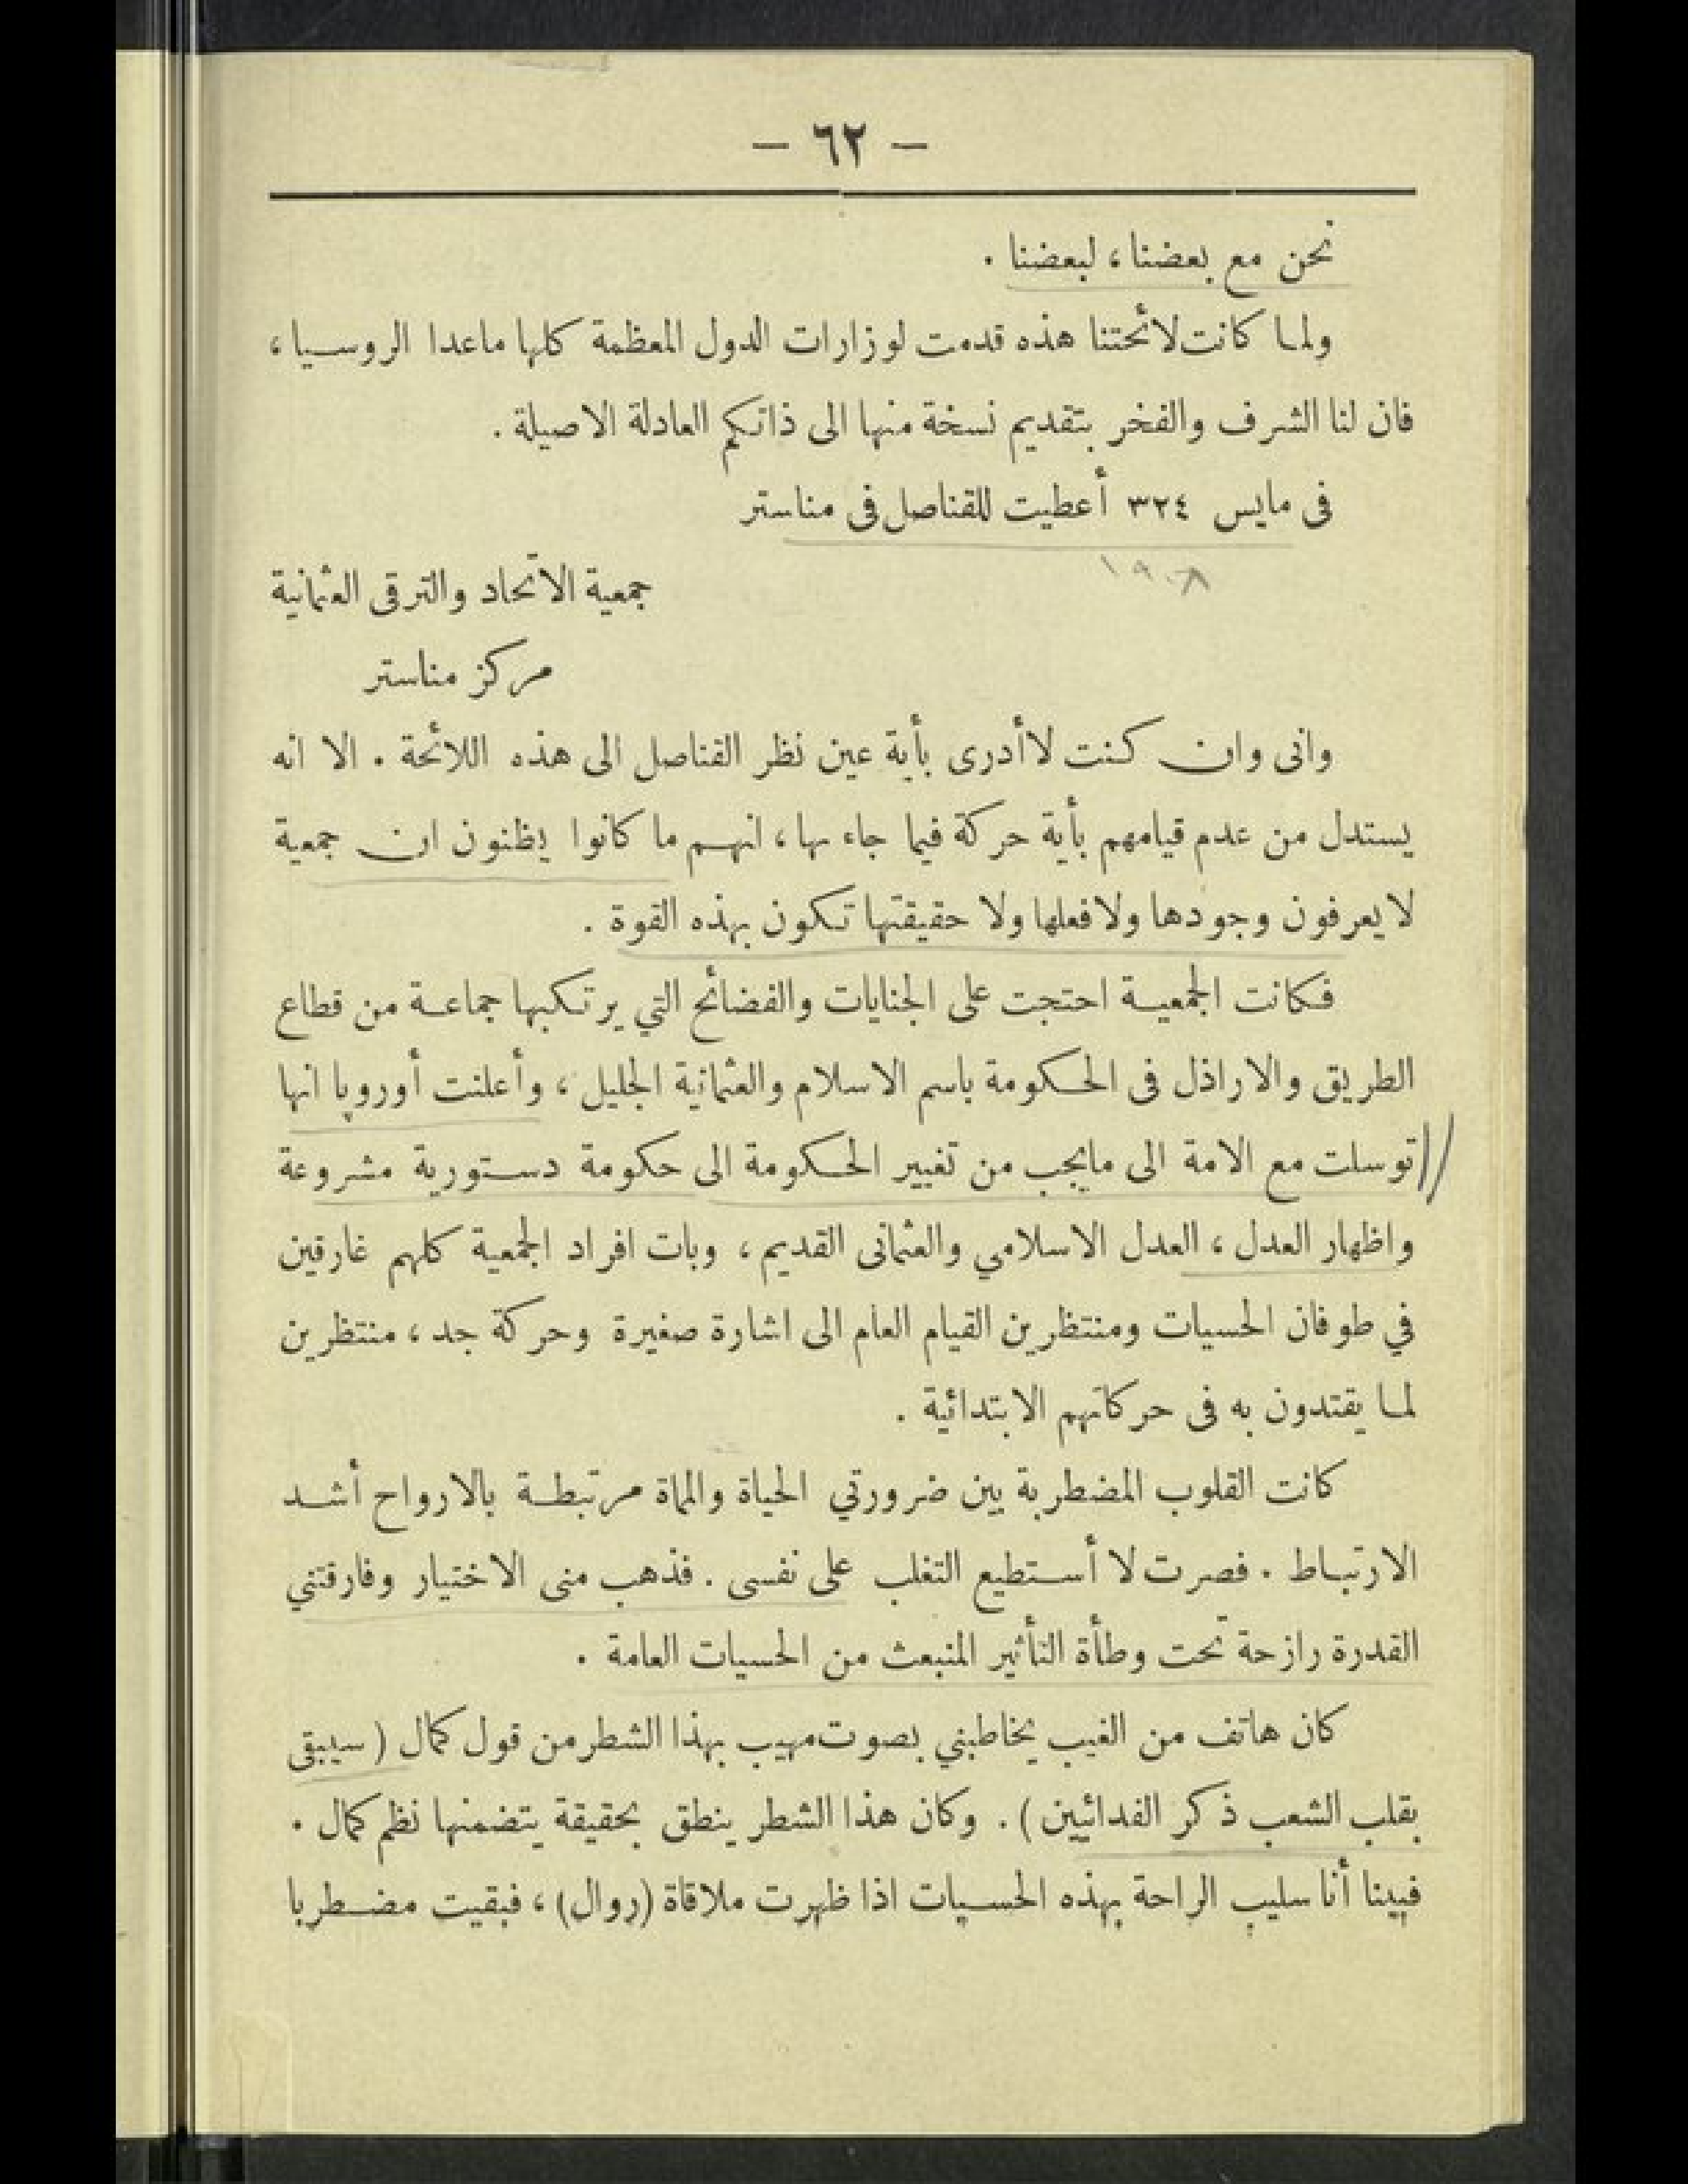 — ٦٢ —
نحن مع بعضنا، لبعضنا .
ولما كانت لائحتنا هذه قدمت لوزارات الدول المعظمة كلها ماعدا الروسيا،
فان لنا الشرف والفخر بتقديم نسخة منها الى ذاتكم العادلة الاصيلة .
فى مايس ٣٢٤ أعطيت للقناصل فى مناستر
١٩٠٨
جمعية الاتحاد والترقى العثمانية
مركز مناستر
وانى وان كنت لا أدرى بأية عين نظر القناصل الى هذه اللائحة . الا انه
يستدل من عدم قيامهم بأية حركة فيما جاء بها، انهم ما كانوا يظنون ان جمعية
لا يعرفون وجودها ولا فعلها ولا حقيقتها تكون بهذه القوة .
فكانت الجمعية احتجت على الجنايات والفضائح التي يرتكبها جماعة من قطاع
الطريق والاراذل فى الحكومة باسم الاسلام والعثمانية الجليل، وأعلنت أوروپا انها
توسلت مع الامة الى مايجب من تغيير الحكومة الى حكومة دستورية مشروعة
واظهار العدل، العدل الاسلامي والعثمانى القديم، وبات افراد الجمعية كلهم غارقين
في طوفان الحسيات ومنتظرين القيام العام الى اشارة صغيرة وحركة جد، منتظرين
لما يقتدون به فى حركاتهم الابتدائية .
كانت القلوب المضطربة بين ضرورتي الحياة والمماة مرتبطة بالارواح أشد
الارتباط . فصرت لا أستطيع التغلب على نفسى . فذهب منى الاختيار وفارقتني
القدرة رازحة تحت وطأة التأثير المنبعث من الحسيات العامة .
كان هاتف من الغيب يخاطبني بصوت مهيب بهذا الشطر من قول كمال ( سيبقى
بقلب الشعب ذكر الفدائيين ) . وكان هذا الشطر ينطق بحقيقة يتضمنها نظم كمال .
فبينا أنا سليب الراحة بهذه الحسيات اذا ظهرت ملاقاة (روال)، فبقيت مضطربا